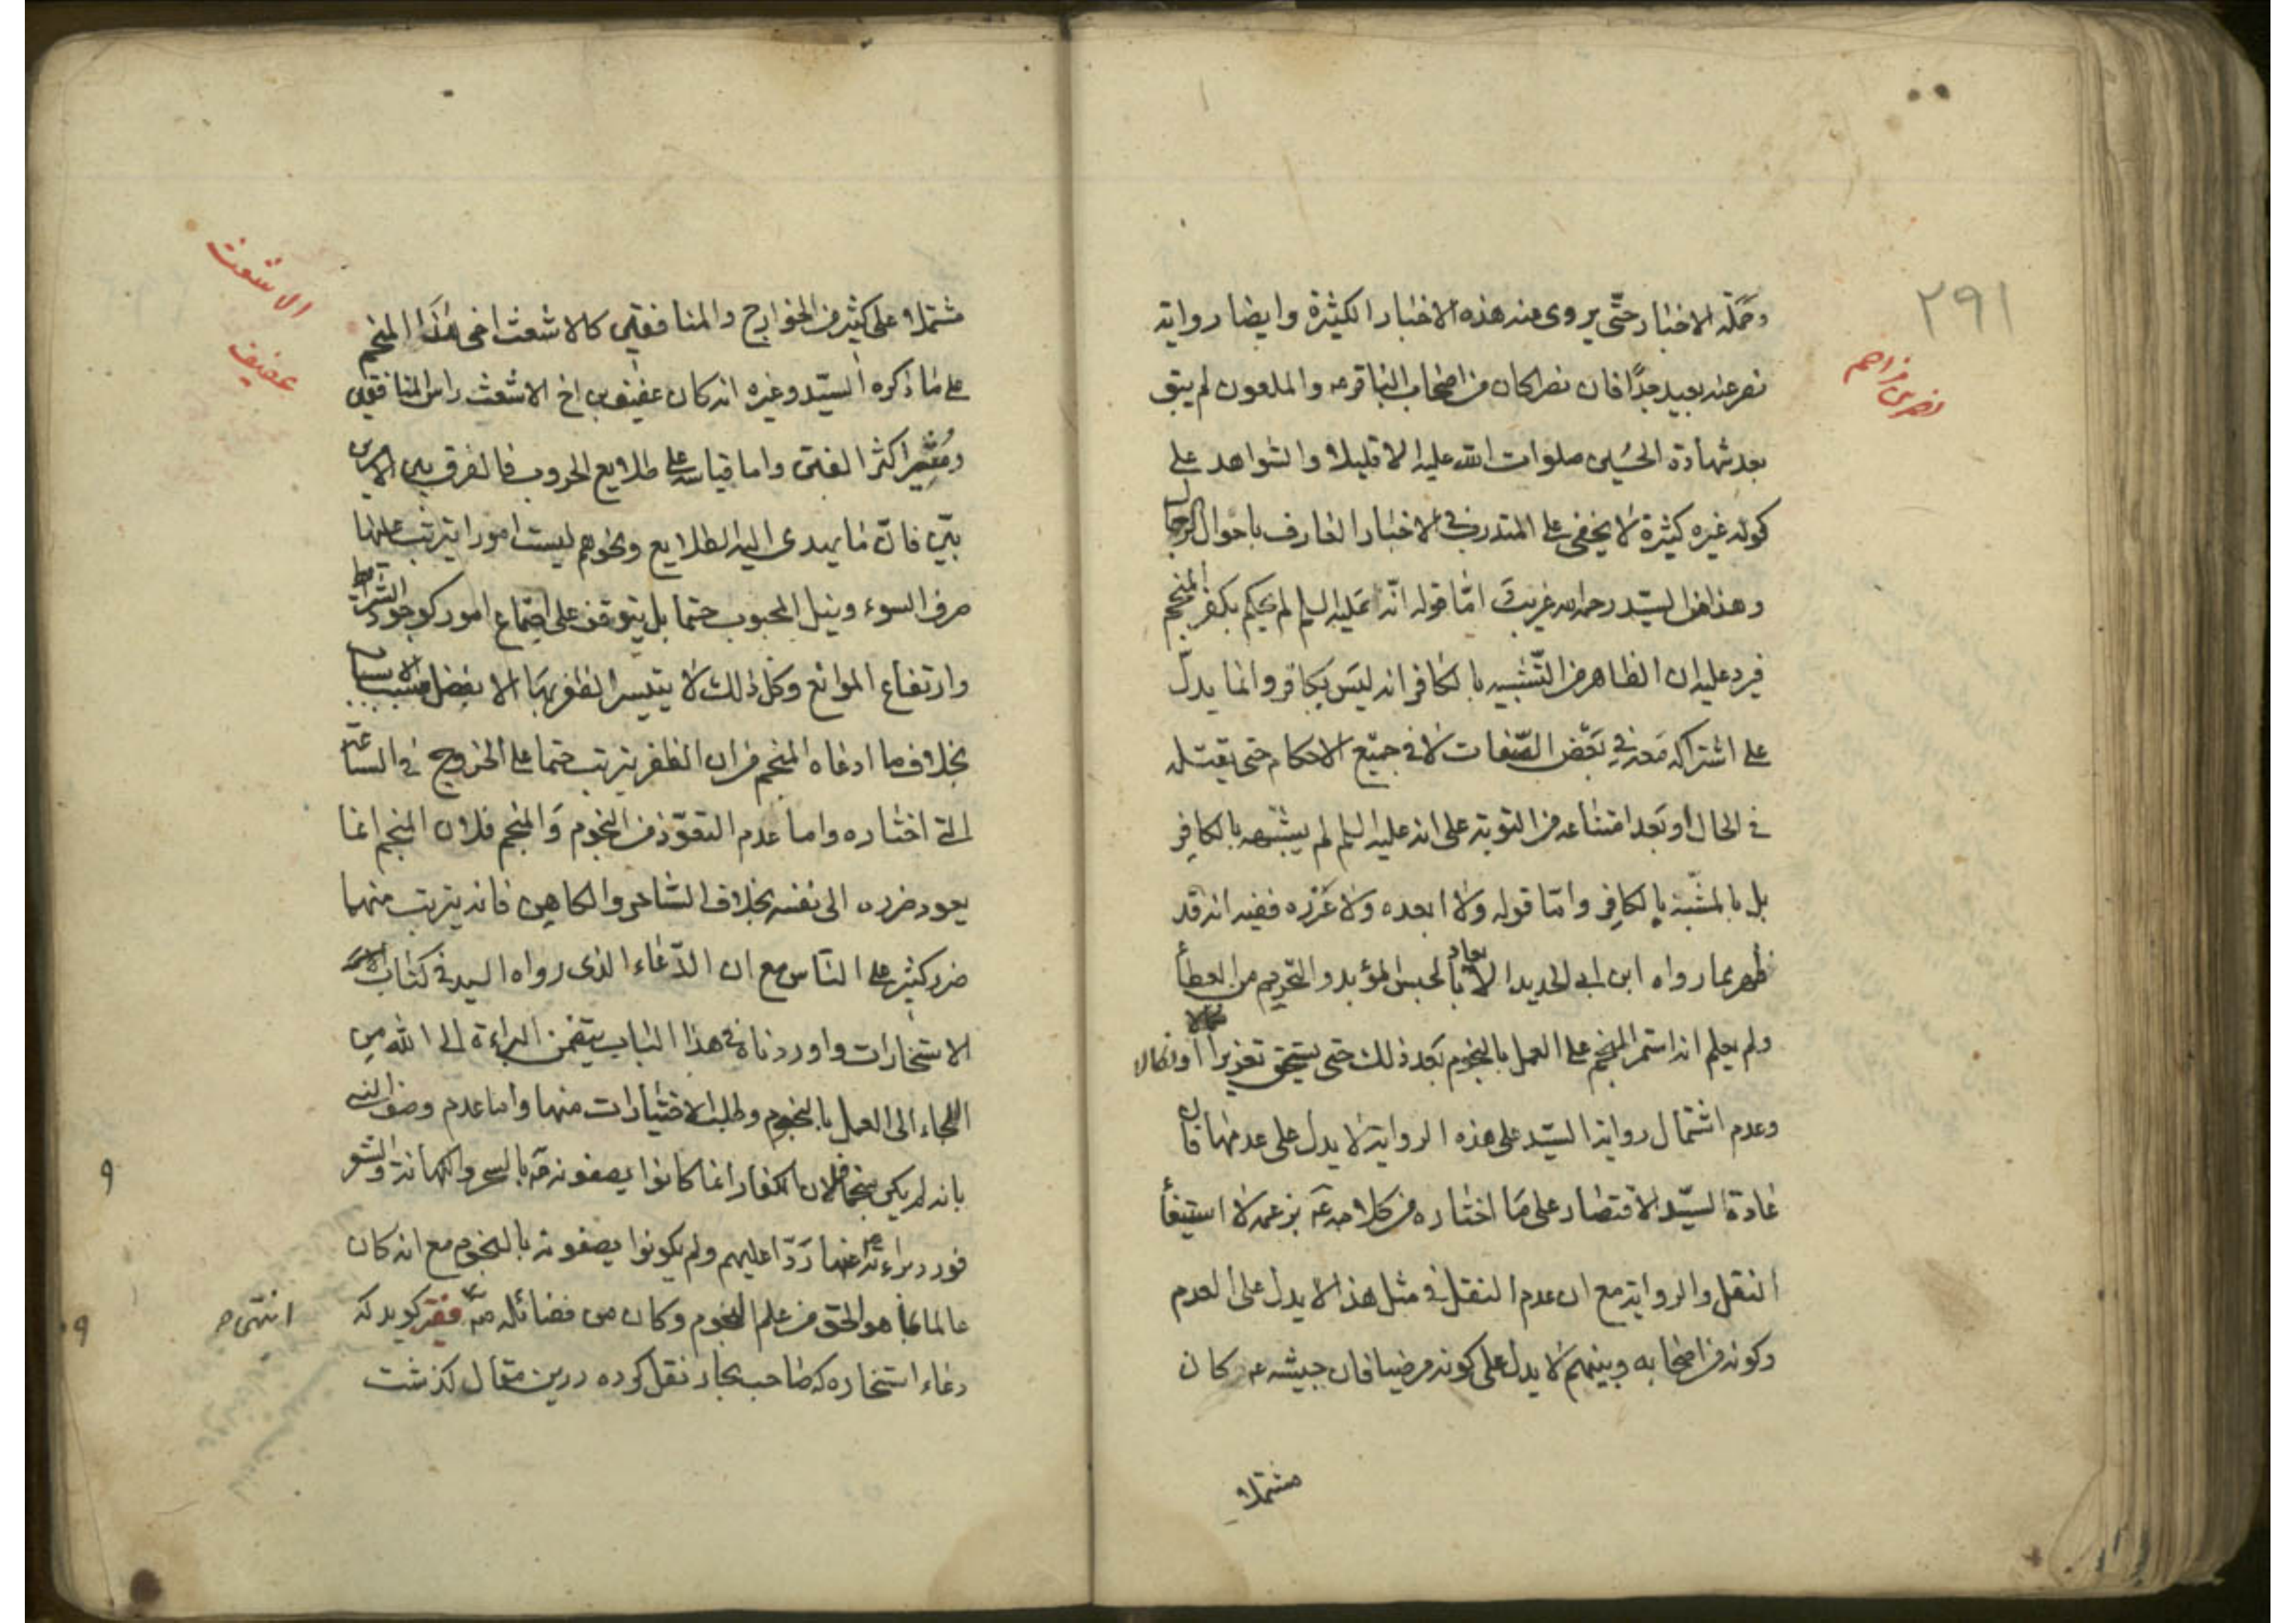 ٢٩١
نصر بن مزاحم
وحملة الاخبار حتّى يروى منه هذه الاخبار الكثيرة وايضا رواية
نصر عنه بعيد جدّا فان نصرا كان من اصحاب الباقر عه والملعون لم يبق
بعد شهادة الحسين صلوات الله عليه الا قليلا والشواهد على
كونه غيره كثيرة لا يخفى على المتدرب فى الاخبار العارف باحوال الرجال
وهذا من السيّد رحمه الله غريب امّا قوله انّه عليه السلم لم يحكم بكفر المنجم
فيرد عليه ان الظاهر من التّشبيه بالكافر انه ليس بكافر وانما يدلّ
على اشتراكه معه فى بعض الصّفات لا فى جميع الاحكام حتى يقتله
فى الحال او بعد امتناعه من التوبة على انه عليه السلم لم يشبّهه بالكافر
بل بالمشبّه بالكافر وامّا قوله ولا ابعده ولا عزّره ففيه انه قد
ظهر بما رواه ابن ابى الحديد الايعاد بالحبس المؤبد والتحريم من العطأ
ولم يعلم انه استمر المنجم على العمل بالنجوم بعد ذلك حتى يستحق تعزيرا او نكالا
وعدم اشتمال رواية السيّد على هذه الرواية لا يدل على عدمها فان
عادة السيّد الاقتصار على ما اختاره من كلامه عه بزعمه لا استيفأ
النقل والرواية مع ان عدم النقل فى مثل هذا لا يدل على العدم
وكونه من اصحابه وبينهم لا يدل على كونه مرضيا فان جيشه عه كان
مشتملا
الاشعث
عفيف
مشتملا على كثير من الخوارج والمنافقين كالاشعث اخى هذا المنجم
على ما ذكره السيّد وغيره انه كان عفيف بن اخ الاشعث راس المنافقين
ومثير اكثر الفتن واما قياسه على طلايع الحروب فالفرق بين الامرين
بيّن فانّ ما يهدى اليه الطلايع ونحوهم ليست امورا يترتب عليها
صرف السوء ونيل المحبوب حتما بل يتوقف على اجتماع امور كوجود الشرائط
وارتفاع الموانع وكل ذلك لا يتيسر الظفر بها الا بفضل مسبب الاسباب
بخلاف ما ادعاه المنجم من ان الظفر يترتب حتما على الخروج فى الساعة
التى اختاره واما عدم التعوّذ من النجوم والمنجم فلان المنجم انما
يعود ضرره الى نفسه بخلاف الساحر والكاهن فانه يترتب منهما
ضرر كثير على الناس مع ان الدّعاء الذى رواه السيد فى كتاب
الاستخارات واوردناه فى هذا الباب يتضمن البراءة الى الله من
اللجاء الى العمل بالنجوم وطلب الاختيارات منها واما عدم وصف النبى
بانه لم يكن منجما فلان الكفار انما كانوا يصفونه ص بالسحر والكهانة والشعر
فورد براءته عنها ردّا عليهم ولم يكونوا يصفونه بالنجوم مع انه كان
عالما بما هو الحق من علم النجوم وكان من فضائله ص انتهى فقير كويد كه
دعاء استخاره كه صاحب بحار نقل كرده درين مقال كذشت